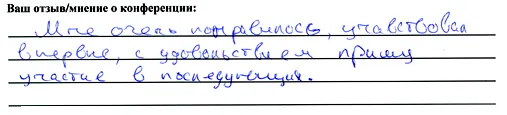 Ваш отзыв/мнение о конференции:
Мне очень понравилось, учавствовал
впервые, с удовольствием приму
участие в последующих.